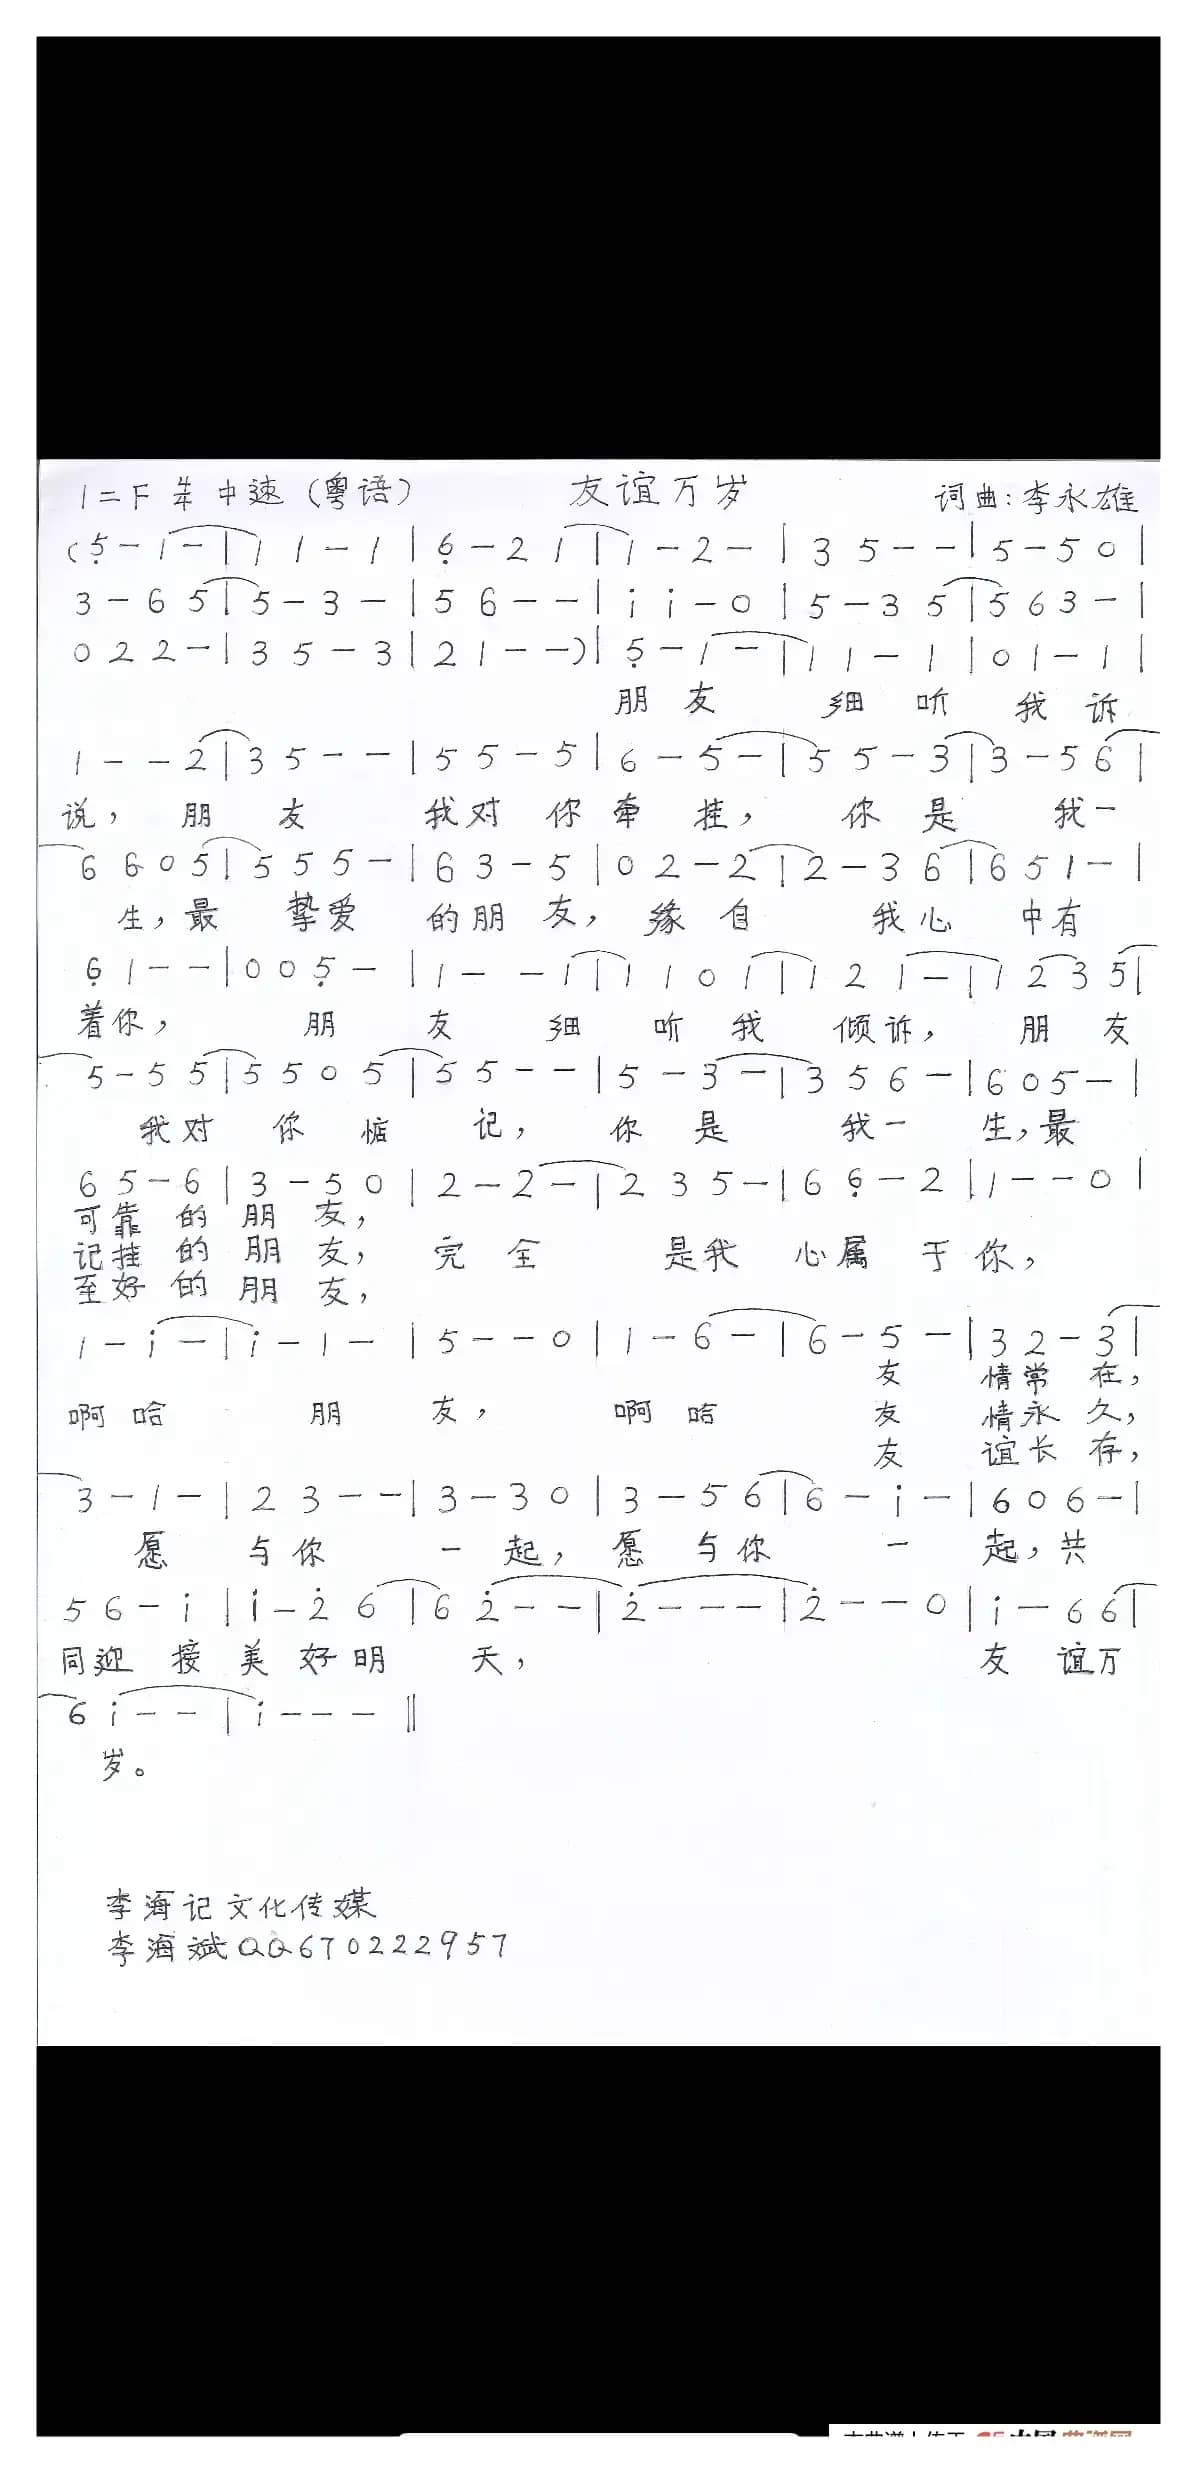 1=F 4/4 中速(粤语) 友谊万岁 词曲:李永雄
(5̣ - 1 - | 1 1 - 1 | 6̣ - 2 1 | 1 - 2 - | 3 5 - - | 5 - 5 0 |
3 - 6 5 | 5 - 3 - | 5 6 - - | i i - 0 | 5 - 3 5 | 5 6 3 - |
0 2 2 - | 3 5 - 3 | 2 1 - -) | 5̣ - 1 - | 1 1 - 1 | 0 1 - 1 |
朋 友 细 听 我 诉
1 - - 2 | 3 5 - - | 5 5 - 5 | 6 - 5 - | 5 5 - 3 | 3 - 5 6 |
说, 朋 友 我对 你 牵 挂, 你 是 我一
6 6 0 5 | 5 5 5 - | 6 3 - 5 | 0 2 - 2 | 2 - 3 6 | 6 5 1 - |
生,最 挚爱 的朋 友, 缘 自 我心 中有
6̣ 1 - - | 0 0 5̣ - | 1 - - 1 | 1 1 0 1 | 1 2 1 - | 1 2 3 5 |
着你, 朋 友 细 听 我 倾诉, 朋 友
5 - 5 5 | 5 5 0 5 | 5 5 - - | 5 - 3 - | 3 5 6 - | 6 0 5 - |
我对 你 惦 记, 你 是 我一 生,最
6 5 - 6 | 3 - 5 0 | 2 - 2 - | 2 3 5 - | 6 6̣ - 2 | 1 - - 0 |
可靠 的 朋 友,
记挂 的 朋 友, 完 全 是我 心属 于 你,
至好 的 朋 友,
1 - i - | i - 1 - | 5 - - 0 | 1 - 6 - | 6 - 5 - | 3 2 - 3 |
友 情常 在,
啊哈 朋 友, 啊 哈 友 情永 久,
友 谊长 存,
3 - 1 - | 2 3 - - | 3 - 3 0 | 3 - 5 6 | 6 - i - | 6 0 6 - |
愿 与你 一 起, 愿 与你 一 起,共
5 6 - i | i - 2̇ 6 | 6 2̇ - - | 2̇ - - - | 2̇ - - 0 | i - 6 6 |
同迎 接 美 好 明 天, 友 谊万
6 i - - | i - - - ‖
岁。
李海记文化传媒
李海斌QQ670222957